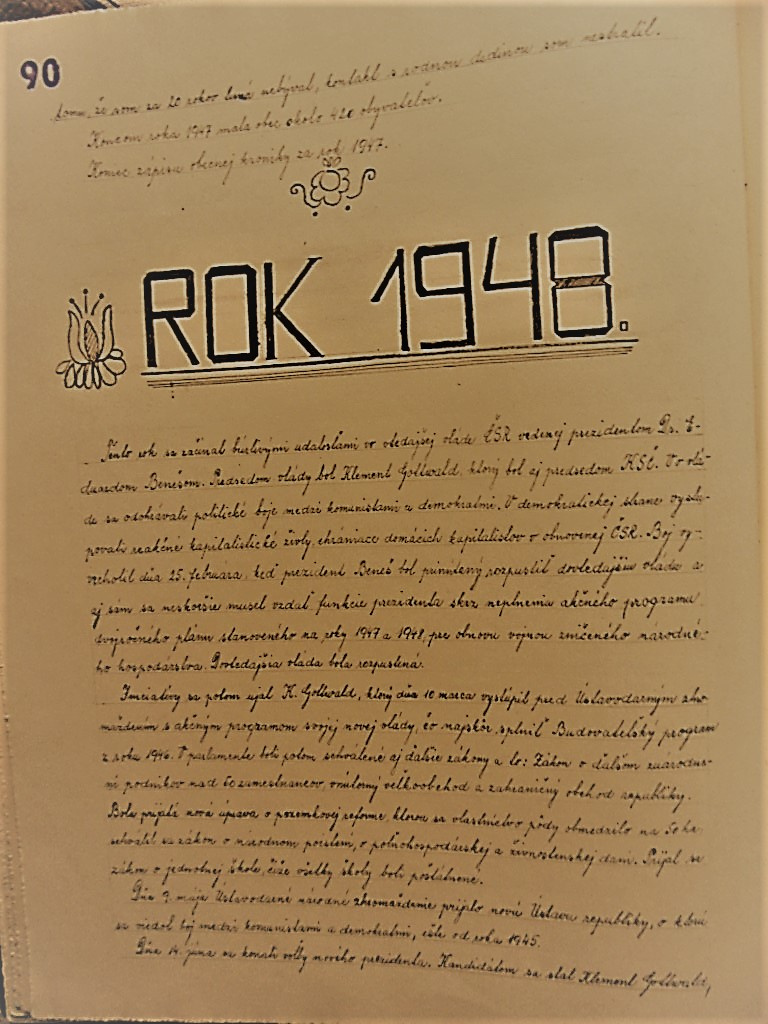 90
tomu, že som za 20 rokov tu nebýval, kontakt s rodnou dedinou som nestratil.
Koncom roka 1947 mala obec okolo 420 obyvateľov.
Koniec zápisu obecnej kroniky za rok 1947.
ROK 1948.
Tento rok sa začínal búrlivými udalosťami vo vtedajšej vláde ČSR vedenej prezidentom Dr. E-
duardom Benešom. Predsedom vlády bol Klement Gottwald, ktorý bol aj predsedom KSČ. Vo vlá-
de sa odohrávali politické boje medzi komunistami a demokratmi. V demokratickej strane vystu-
povali reakčné kapitalistické živly, chrániace domácich kapitalistov v obnovenej ČSR. Boj vy-
vrcholil dňa 25. februára, keď prezident Beneš bol prinútený rozpustiť dovtedajšiu vládu a
aj sám sa neskoršie musel vzdať funkcie prezidenta skrz neplnenia akčného programu
dvojročného plánu stanoveného na roky 1947 a 1948, pre obnovu vojnou zničeného národné-
ho hospodárstva. Dovtedajšia vláda bola rozpustená.
Iniciatívy sa potom ujal K. Gottwald, ktorý dňa 10 marca vystúpil pred Ústavodarným zhro-
maždením s akčným programom svojej novej vlády, čo najskôr splniť Budovateľský program
z roku 1946. V parlamente boli potom schválené aj ďalšie zákony a to: Zákon o ďalšom znárodne-
ní podnikov nad 50 zamestnancov, vnútorný veľkoobchod a zahraničný obchod republiky.
Bola prijatá nová úprava o pozemkovej reforme, ktorou sa vlastníctvo pôdy obmedzilo na 50 ha
schválil sa zákon o národnom poistení, o poľnohospodárskej a živnostenskej dani. Prijal sa
zákon o jednotnej škole, čiže všetky školy boli poštátnené.
Dňa 9. mája Ústavodarné národné zhromaždenie prijalo novú Ústavu republiky, o ktorú
sa viedol boj medzi komunistami a demokratmi, ešte od roku 1945.
Dňa 14. júna sa konali voľby nového prezidenta. Kandidátom sa stal Klement Gottwald,